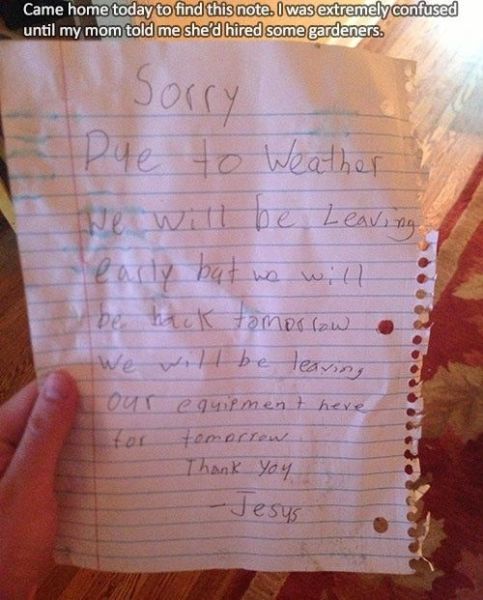 Came home today to find this note. I was extremely confused
until my mom told me she'd hired some gardeners.
Sorry
Due to Weather
We will be Leaving
early but we will
be back tomorrow
We will be leaving
our equipment here
for tomorrow
Thank you
- Jesus